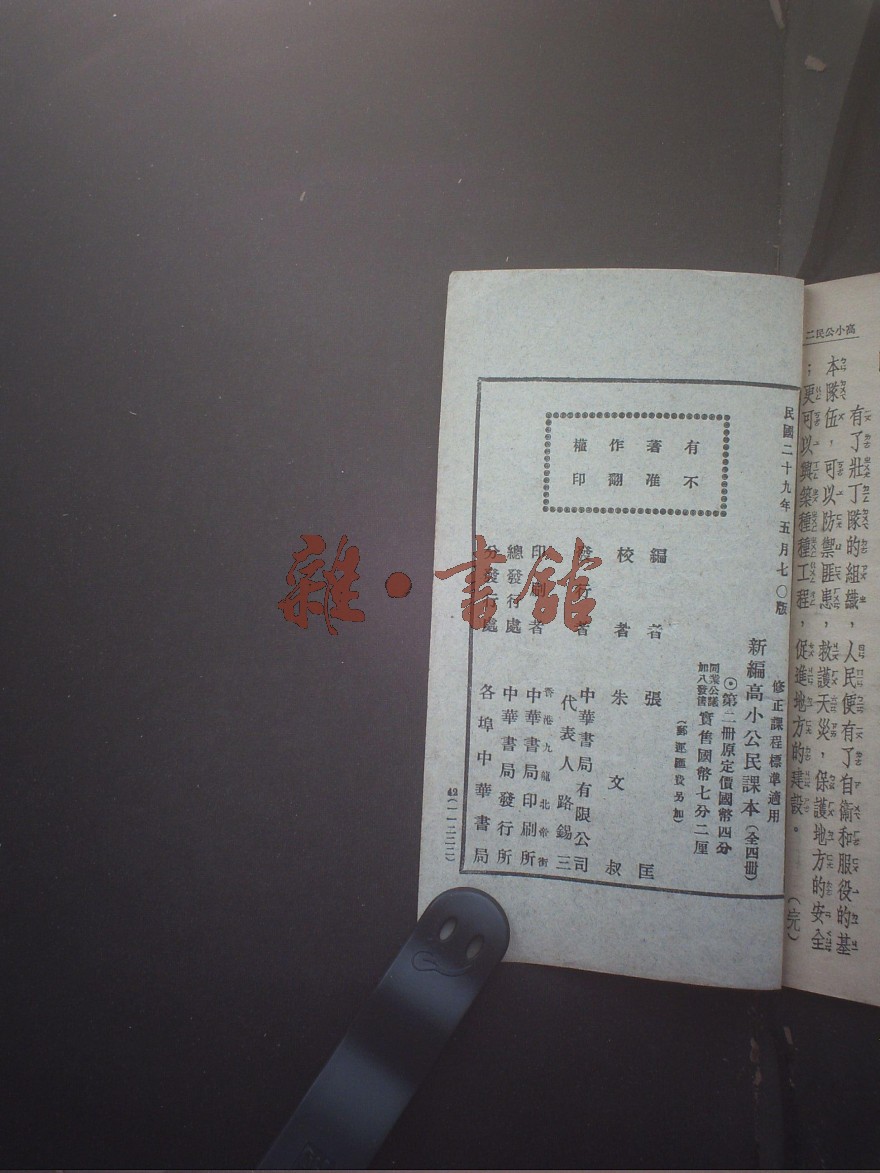 高小公民二
有了壯丁隊的組織，人民便有了自衛和服役的基
本隊伍，可以防禦匪患，救護天災，保護地方的安全
；更可以興築種種工程，促進地方的建設。
（完）
民國二十九年五月七〇版
修正課程標準適用
新編高小公民課本（全四冊）
⊙第二冊原定價國幣四分
同業公議
加八發售
實售國幣七分二厘
（郵運匯費另加）
有著作權
不准翻印
編者 張匡
校者 朱文叔
發行者 中華書局有限公司
代表人 路錫三
印刷者 香港九龍北帝街
中華書局印刷所
總發行處 中華書局發行所
分發行處 各埠中華書局
（一一二二二）
雜·書館